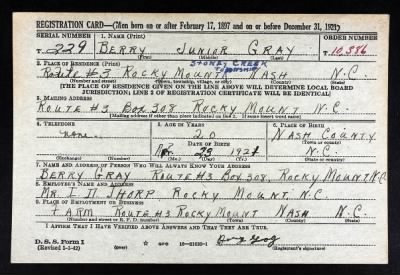 REGISTRATION CARD—(Men born on or after February 17, 1897 and on or before December 31, 1921)
SERIAL NUMBER 1. NAME (Print) ORDER NUMBER
T-229 BERRY JUNIOR GRAY T-10,386
(First) (Middle) (Last)
STONEY CREEK
2. PLACE OF RESIDENCE (Print) Township
ROUTE #3 ROCKY MOUNT NASH N.C.
(Number and street) (Town, township, village, or city) (County) (State)
[THE PLACE OF RESIDENCE GIVEN ON THE LINE ABOVE WILL DETERMINE LOCAL BOARD
JURISDICTION; LINE 2 OF REGISTRATION CERTIFICATE WILL BE IDENTICAL]
3. MAILING ADDRESS
ROUTE #3 BOX 308 ROCKY MOUNT N.C.
[Mailing address if other than place indicated on line 2. If same insert word same]
4. TELEPHONE 5. AGE IN YEARS 6. PLACE OF BIRTH
none 20 NASH COUNTY
DATE OF BIRTH (Town or county)
23 1921 N.C.
(Exchange) (Number) (Mo.) (Day) (Yr.) (State or country)
7. NAME AND ADDRESS OF PERSON WHO WILL ALWAYS KNOW YOUR ADDRESS
BERRY GRAY ROUTE #3 BOX 308, ROCKY MOUNT N.C.
8. EMPLOYER'S NAME AND ADDRESS
MR. THORP ROCKY MOUNT, N.C.
9. PLACE OF EMPLOYMENT OR BUSINESS
FARM ROUTE #3 ROCKY MOUNT NASH N.C.
(Number and street or R. F. D. number) (Town) (County) (State)
I AFFIRM THAT I HAVE VERIFIED ABOVE ANSWERS AND THAT THEY ARE TRUE.
D. S. S. Form 1
(Revised 1-1-42) (over) GPO 16-21630-1
(Registrant's signature)